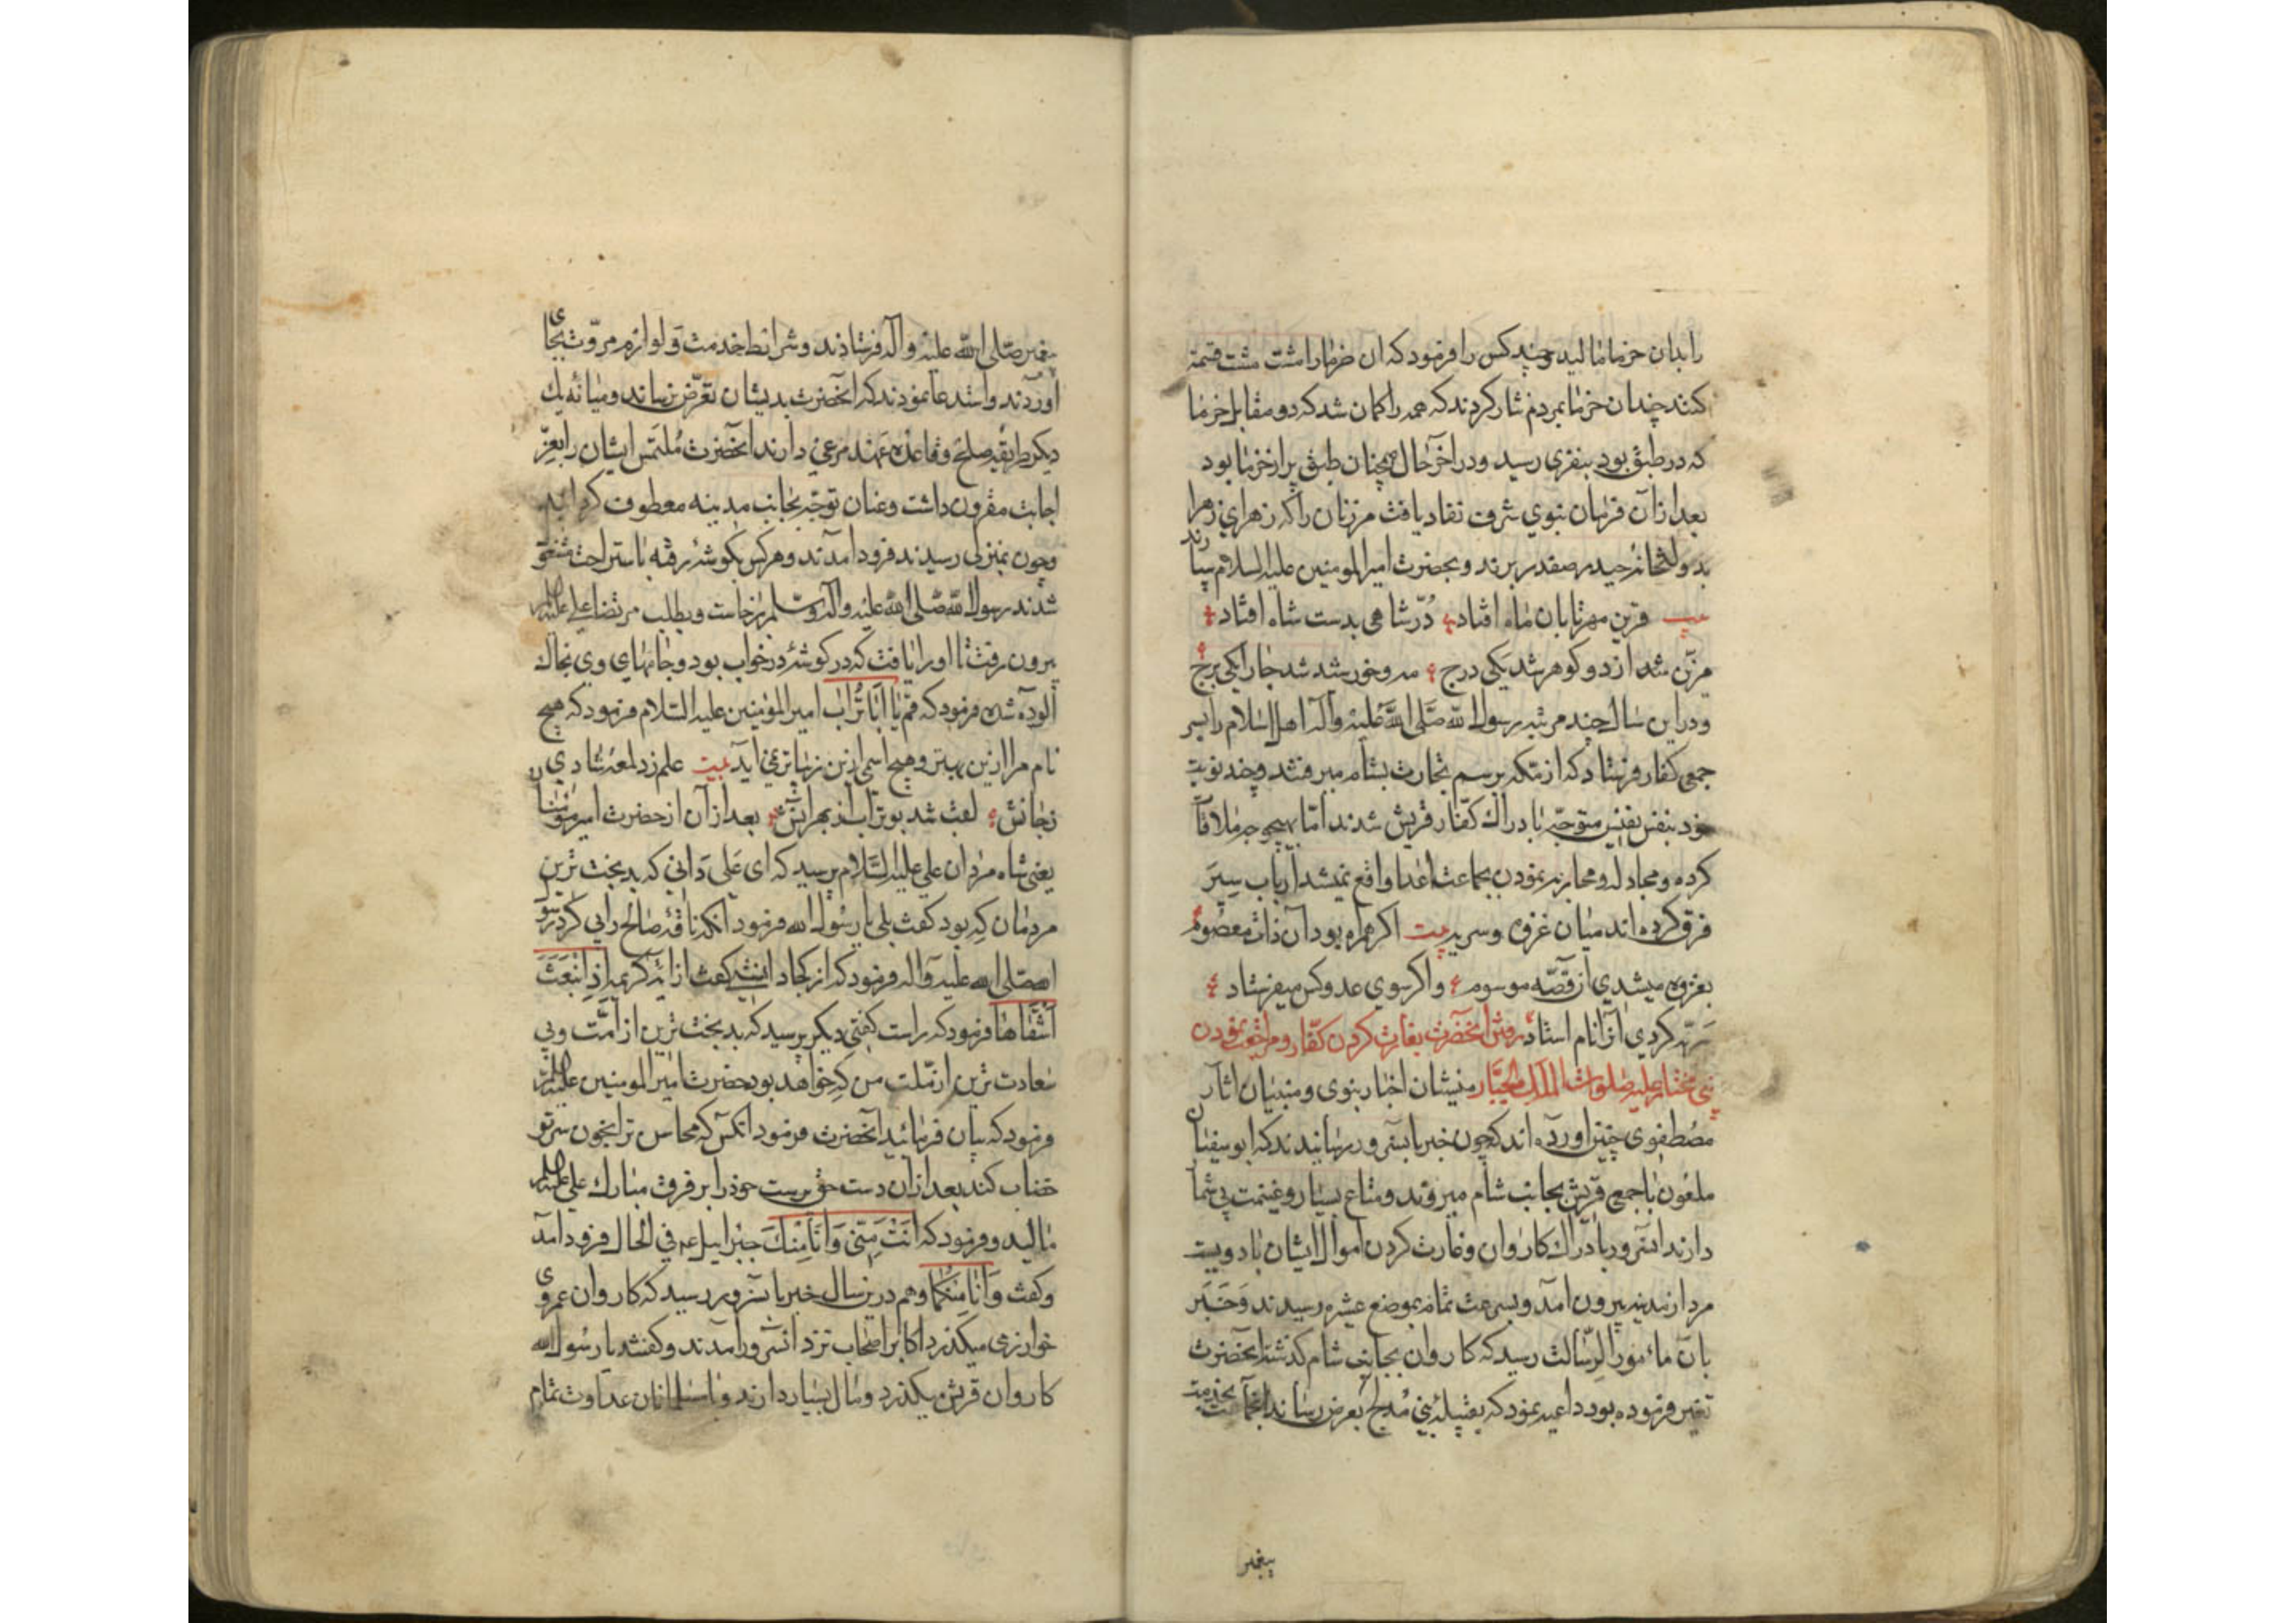 را بدان خرما مالید و چند کس را فرمود که ان خرما را مشت مشت قسمة
کنند چندان خرما بمردم نثار کردند که همه را کمان شد که دو مقابل خرما
که در طبق بود بنفری رسید و در اخر حال همچنان طبق پر از خرما بود
بعد از آن فرمان نبوي شرف نفاد یافت مر زنان را که زهراي زهرا
بدولتخانه حیدر صفدر برند و بحضرت امیر المومنین علیه السلام سپارند
بیت قرین مهر تابان ماه افتاد دُرّ شاهی بدست شاه افتاد
مزیّن شد از دو کوهر شد یکی درج مه و خورشید شد جا را یکی برج
و دراین سال چند مرتبه رسول الله صَلَّی اللَّه عَلَیْه وآله اهل اسلام را بسر
جمعی کفار فرستاد که از مکه برسم تجارت بشام میرفتند و چند نوبت
خود بنفس نفیس متوجّه بادراك کفّار قریش شدند امّا بهیچ وجه ملاقات
کرده و مجادله و محاربه نمودن بجماعت اعدا واقع نمیشد ارباب سِیَر
فرق کرده اند میان غزوه و سریه بیت اکر همراه بود آن ذات معصوم
بغزوه میشدي آن قصّه موسوم و اکر سوي عدو کس میفرستاد
سَریّه کردي آنرا نام استاد رفتن انحضرت بغارت کردن کفّار و مراجعت نمودن
نبي مختار علیه صلوات الملك الجبّار منشیان اخبار نبوی و مبنیان اثار
مصطفوی چنین اورده اند که چون خبر بانسرور رسانیدند که ابو سفیان
ملعون با جمعی قریش بجانب شام میروند و متاع بسیار و غنیمت بی شمار
دارند انسرور بادراك کاروان و غارت کردن اموال ایشان با دویست
مرد از مدینه بیرون امد و بسرعت تمام بموضع عشیره رسیدند و خَبَر
بان مامور الرّسالت رسید که کاروان بجانب شام کذشته انحضرت
تغیر فرموده بود داعیه نمود که بقبیله بني مُدلج تعرض رساند انجماعت بخدمت
پیغمبر
پیغمبر صلی الله علیه و آله فرستادند و شرائط خدمت و لوازم مروّت بجای
اوردند و استدعا نمودند که انحضرت بدیشان تعرّض نرساند و میانه یك
دیکر طریقه صلح و قاعده عهد مرعي دارند انحضرت مُلتمس ایشان را بعزّ
اجابت مقرون داشت و عنان توجّه بجانب مدینه معطوف کردانید
و چون بمنزلی رسیدند فرود امدند و هر کس بکوشه رفته باستراحت متفق
شدند رسول الله صلی الله علیه و اله وسلم برخاست و بطلب مرتضا علی علیه السلام
بیرون رفت تا او را یافت که در کوشه در خواب بود و جامهاي وي بخاك
آلوده شده فرمود که قم یا اَبَا تُراب امیر المؤمنین علیه السّلام فرمود که هیچ
نام مرا ازین بهتر و هیچ اسمی ازین زیباتر نمي اید بیت علم زد لمعه شادي
زجانش لقب شد بو تراب از بهر انش بعد از آن از حضرت امیر مؤمنان
یعنی شاه مردان علي علیه السَّلام پرسید که ای علی دَاني که بدبخت ترین
مردمان که بود کفت بلی یا رسول الله فرمود انکه ناقه صالح را پی کرد رسول
الله صلی الله علیه و اله فرمود که از کجا دانستي کفت از ایه کریمه اِذِ انْبَعَثَ
اَشْقاها فرمود که راست کفتی دیکر پرسید که بدبخت ترین از امّت و بي
سعادت ترین از ملّت من که خواهد بود حضرت امیر المومنین علیه السلام
فرمود که بیان فرمائید انحضرت فرمود انکس که محاسن ترا بخون سر تو
خضاب کند بعد ازان دست حق پرست خود را بر فرق مبارك علي علیه السلام
مالید و فرمود که انتَ مِنّی وَ اَنَا مِنْكَ جبراییل عم في الحال فرود امد
و کفت وَ اَنَا مِنکُما و هم درین سال خبر بانسرور رسید که کاروان عمروی
خوارزی میکذرد اکابر اصحاب نزد انسرور امدند و کفتند یا رسول الله
کاروان قریش میکذرد و مال بسیار دارند و با مسلمانان عداوت تمام